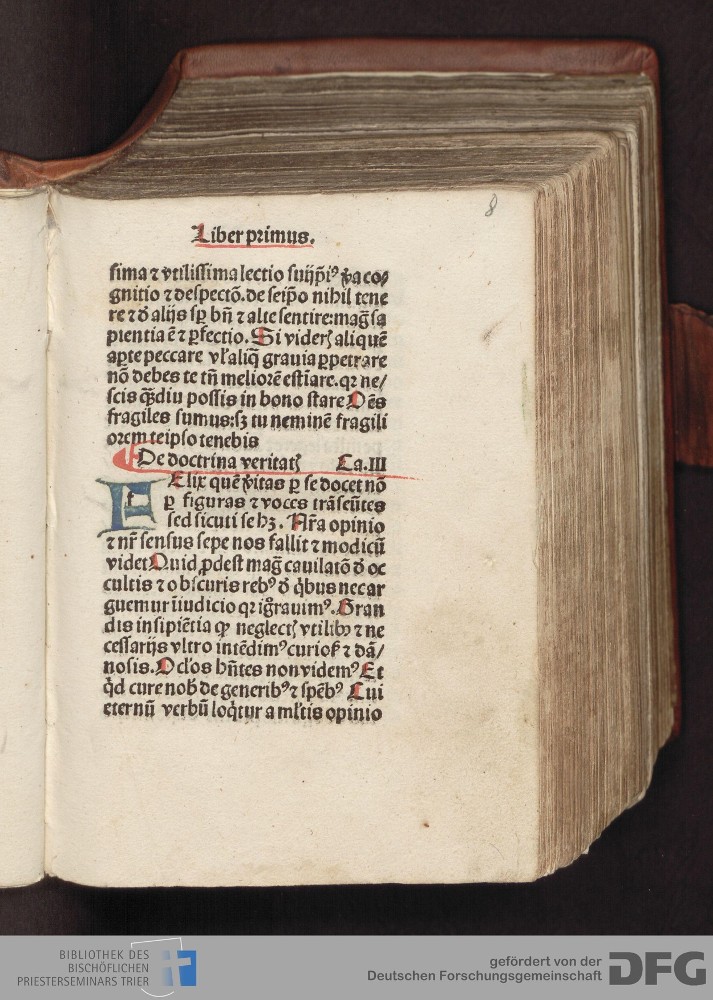 8
Liber primus.
sima ⁊ vtilissima lectio suijp̄i⁹ ꝟa co⸗
gnitio ⁊ despectō. de seip̄o nihil tene
re ⁊ đ alijs sꝑ bn̄ ⁊ alte sentire: mag̃ sa
pientia ē ⁊ ꝑfectio. Si viderꝭ aliquē
aꝑte peccare vl̓ aliq̄ grauia ꝑpetrare
nō debes te tn̄ meliorē estiare. qꝛ ne/
scis q̄ꝫdiu possis in bono stare Oēs
fragiles sumus: sꝫ tu neminē fragili
orem teipso tenebis
De doctrina veritatꝭ Ca. III
FElix quē ꝟitas ꝑ se docet nō
ꝑ figuras ⁊ voces trāseūtes
sed sicuti se hꝫ. Nr̄a opinio
⁊ nr̄ sensus sepe nos fallit ⁊ modicū
videt Quid ꝓdest mag̃ cauilatō đ oc
cultis ⁊ obscuris reb⁹ đ q̇bus nec ar
guemur ī iudicio qꝛ ig̊rauim⁹. Gran
dis insipiētia ꝙ neglectꝭ vtilibꝫ ⁊ ne
cessarijs vltro intēdim⁹ curiosꝭ ⁊ dā/
nosis. Ocl̓os hn̄tes non videm⁹ Et
q̇d cure nob̄ de generib⁹ ⁊ spēb⁹ Cui
eternū verbū loq̇tur a ml̓tis opinio
BIBLIOTHEK DES
BISCHÖFLICHEN
PRIESTERSEMINARS TRIER
gefördert von der
Deutschen Forschungsgemeinschaft
DFG